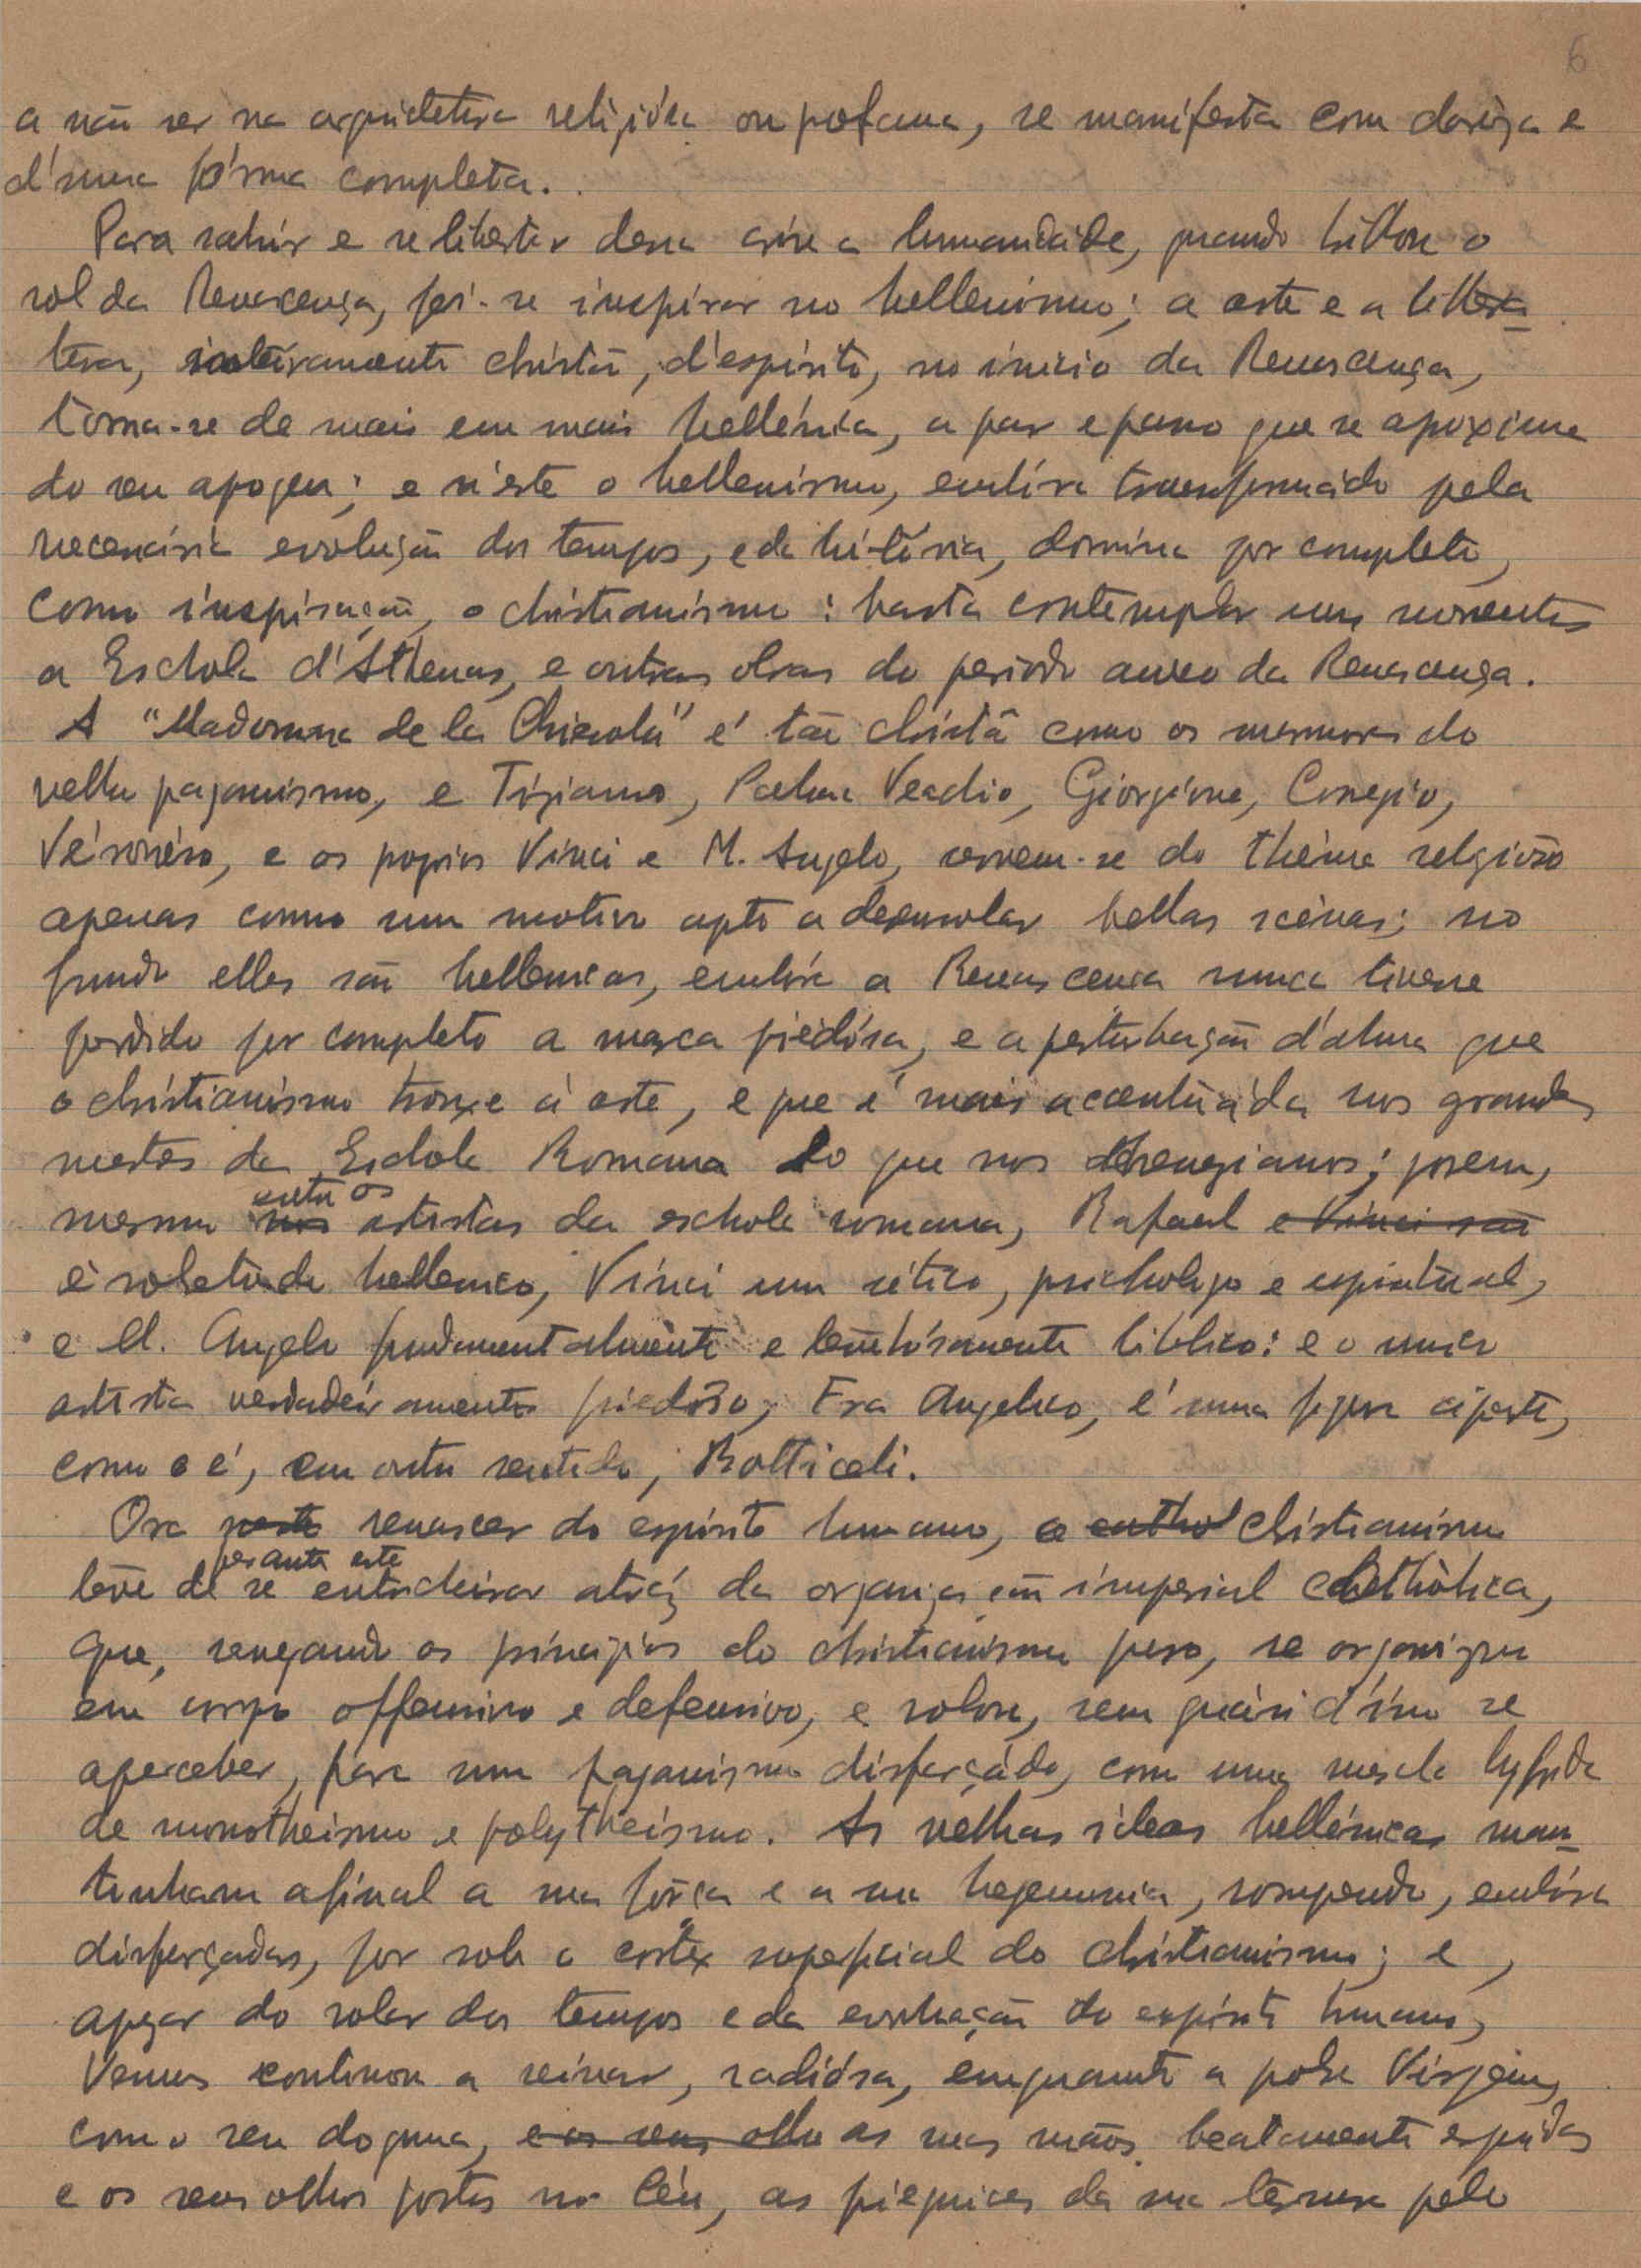 6
a não ser na arquitetura religiósa ou profana, se manifesta com clarêza e
d'uma fórma completa.
Para sahir e se libertar dessa crise a humanidade, quando brilhou o
sol da Renascença, foi-se inspirar no hellenismo; a arte e a littera-
tura, inteiramente christã, d'espirito, no inicio da Renascença,
torna-se de mais em mais hellénica, a par e passo que se aproxima
do seu apogeu; e n'este o hellenismo, embóra transformado pela
necessária evolução dos tempos, e da história, domina por completo,
como inspiração, o christianismo: basta contemplar uns momentos
a Eschola d'Athenas, e outras obras do periodo aureo da Renascença.
A "Madonna de la Chierola" é tão christã como os marmores do
velho paganismo, e Tiziano, Palma Vecchio, Giorgione, Corregio,
Véronéso, e os proprios Vinci e M. Angelo, servem-se do thême religioso
apenas como um motivo apto a desenrolar bellas scénas; no
fundo elles são hellenicos, embóra a Renascença nunca tivesse
perdido por completo a marca piedósa, e a perturbação d'alma que
o christianismo trouxe á arte, e que é mais accentuáda nos grandes
mestres da Eschola Romana do que nos venezianos; porem,
mesmo entre os nos artistas da eschola romana, Rafael e Vinci são
é sobretudo hellenico, Vinci um sético, psichologo e espiritual,
e M. Angelo fundamentalmente e tenebrósamente biblico: e o unico
artista verdadeiramente piedoso, Fra Angelico, é uma figura áparte,
como o é, em outro sentido, Botticeli.
Ora neste renascer do espirito humano, o catho christianismo
teve de perante este se entrincheirar atráz da organização imperial cathòlica,
que, renegando os principios do christianismo puro, se organizou
em corpo offensivo e defensivo, e rolou, sem quási d'isso se
aperceber, para um paganismo disfarçádo, com uma mescla hybrida
de monotheismo e polytheismo. As velhas ideas hellénicas man-
tinham afinal a sua força e a sua hegemonia, rompendo, embóra
disfarçadas, por sob o cortex superficial do christianismo; e,
apezar do rolar dos tempos e da evolução do espirito humano,
Venus continou a reinar, radiósa, emquanto a pobre Virgem,
com o seu dogma, e os seus olho as suas mãos beatamente erguidas
e os seus olhos postos no Céu, as pieguices da sua ternura pelo